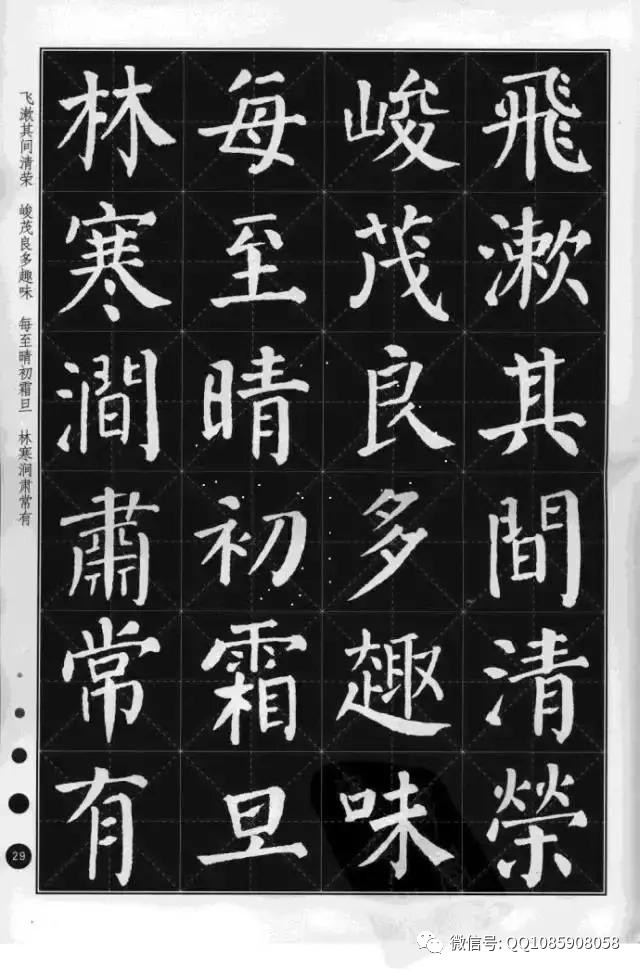 飛漱其間清榮
峻茂良多趣味
每至晴初霜旦
林寒澗肅常有
飞漱其间清荣 峻茂良多趣味 每至晴初霜旦 林寒涧肃常有
29
微信号: QQ1085908058